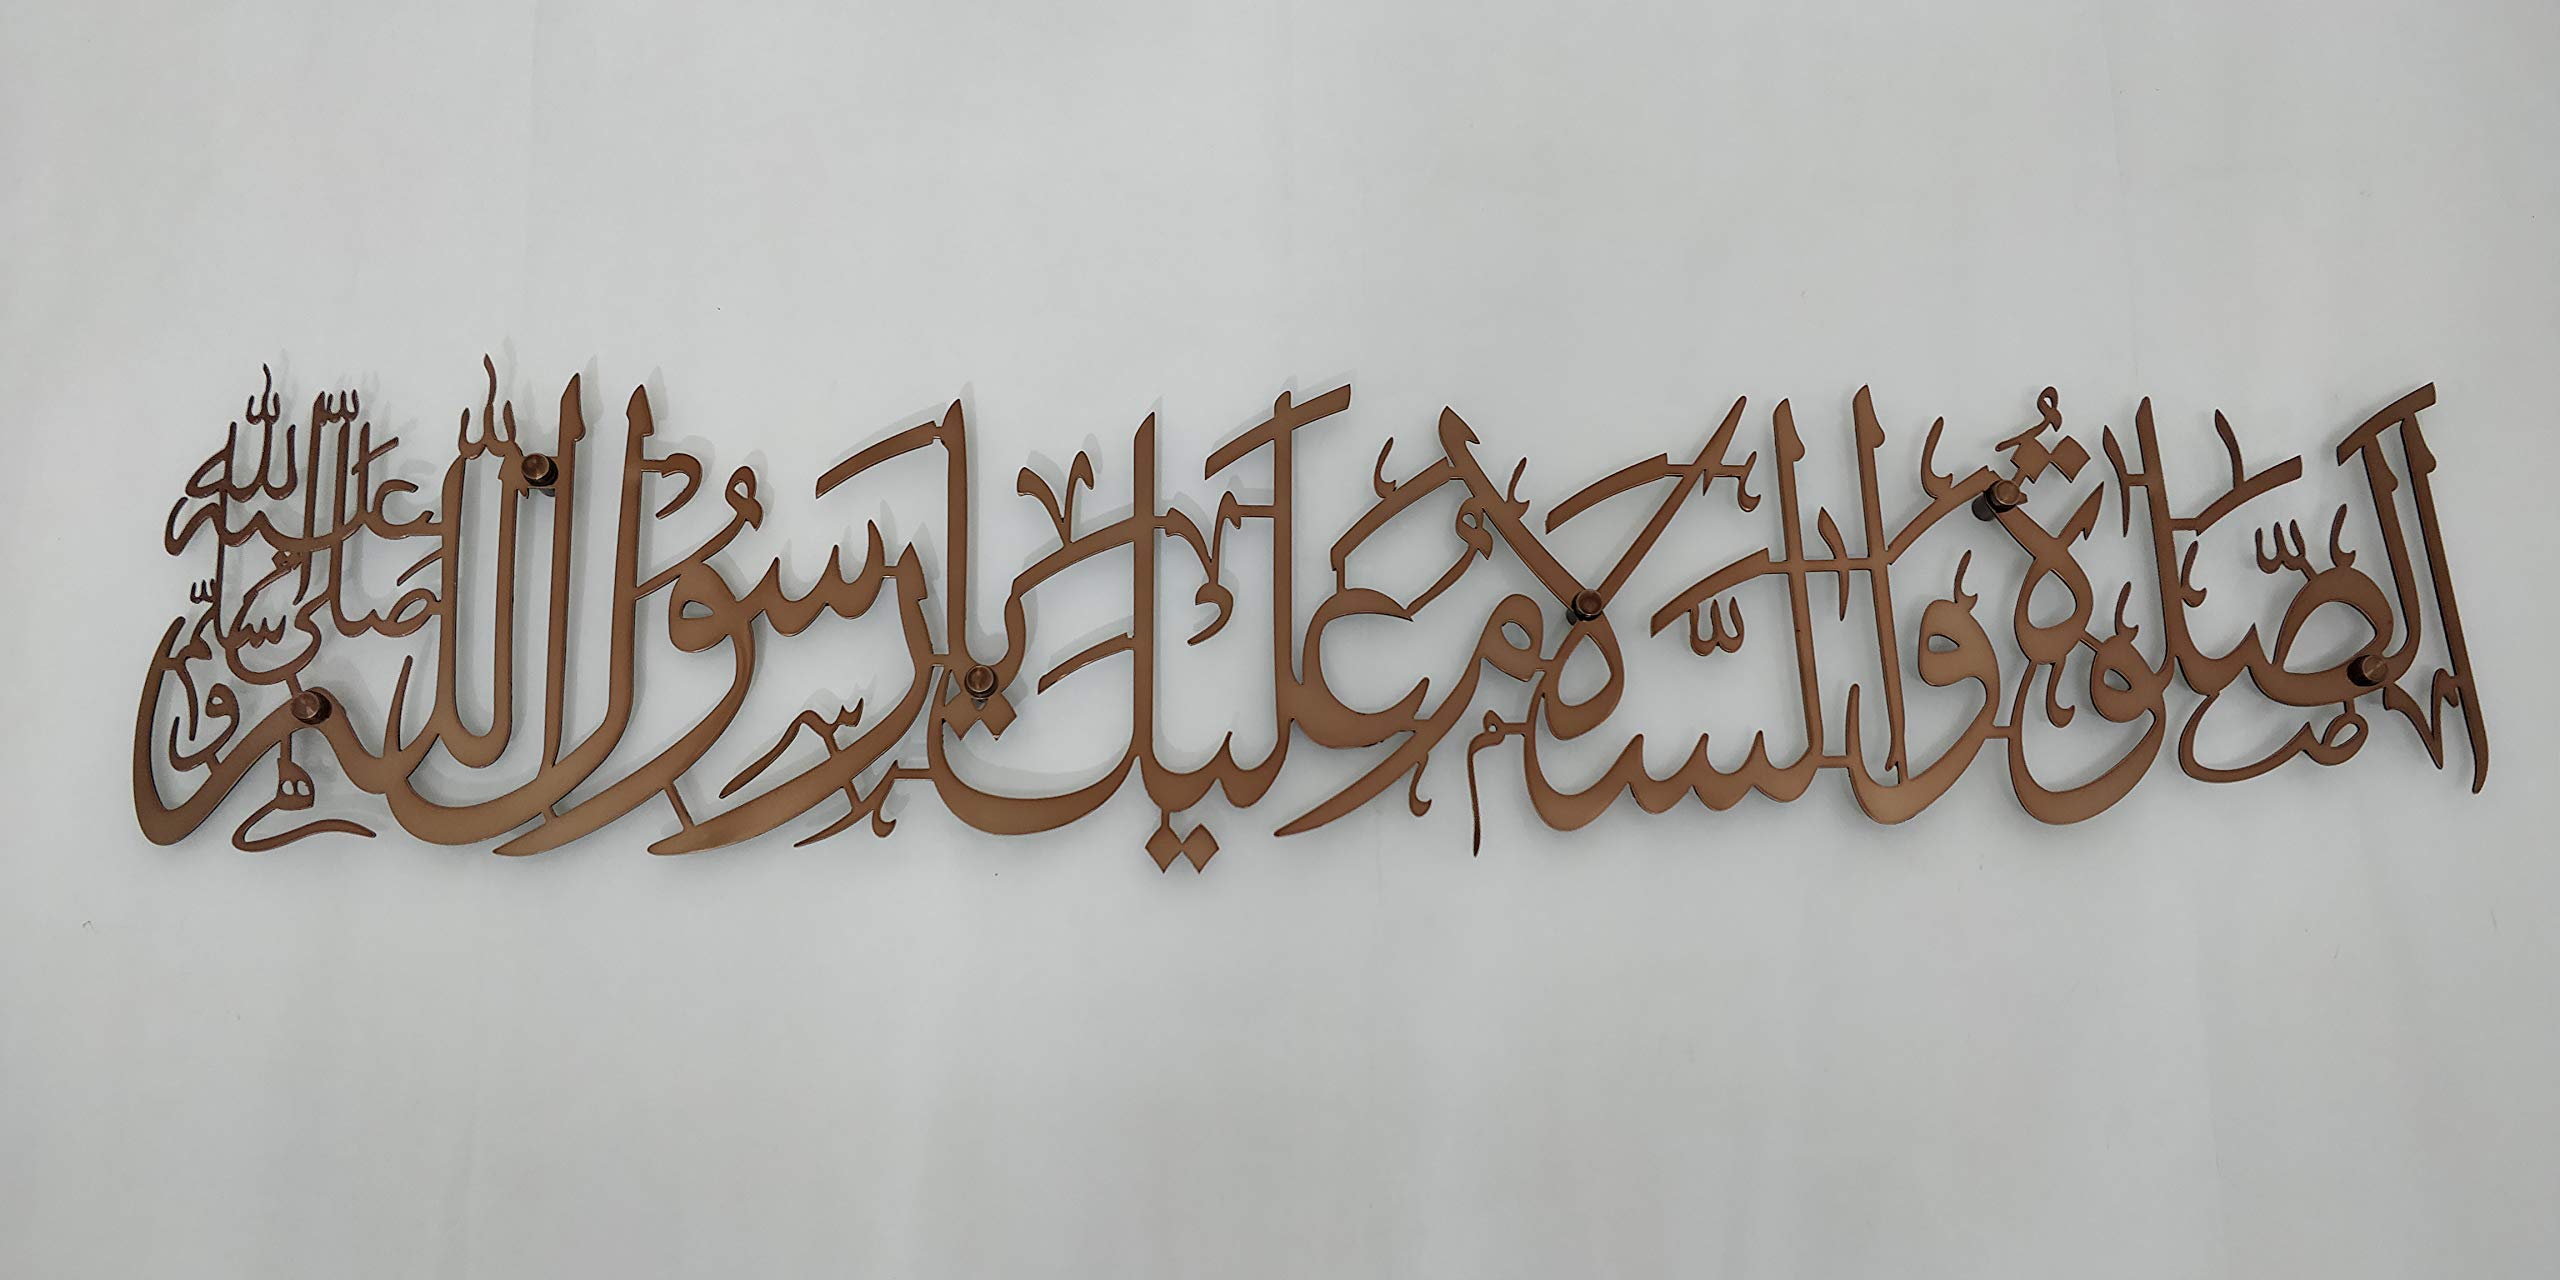 الصَّلٰوةُ وَالسَّلَامُ عَلَيْكَ يَارَسُوْلَ اللّٰهِ
صَلَّى اللّٰهُ عَلَيْهِ وَسَلَّمَ